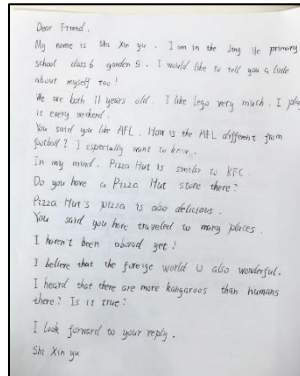 Dear Friend.
My name is Sha Xin yu. I am in the Jing Ye primary
school class 6 garden 5. I would like to tell you a little
about myself too!
We are both 11 years old. I like lego very much. I play
is every weekend.
You said you like AFL. How is the AFL different from
football? I especially want to know.
In my mind. Pizza Hut is similar to KFC.
Do you have a Pizza Hut store there?
Pizza Hut's pizza is also delicious.
You said you have traveled to many places.
I haven't been abroad yet!
I believe that the foreige world is also wonderful.
I heard that there are more kangaroos than humans
there? Is is true?
I look forward to your reply.
Sha Xin yu